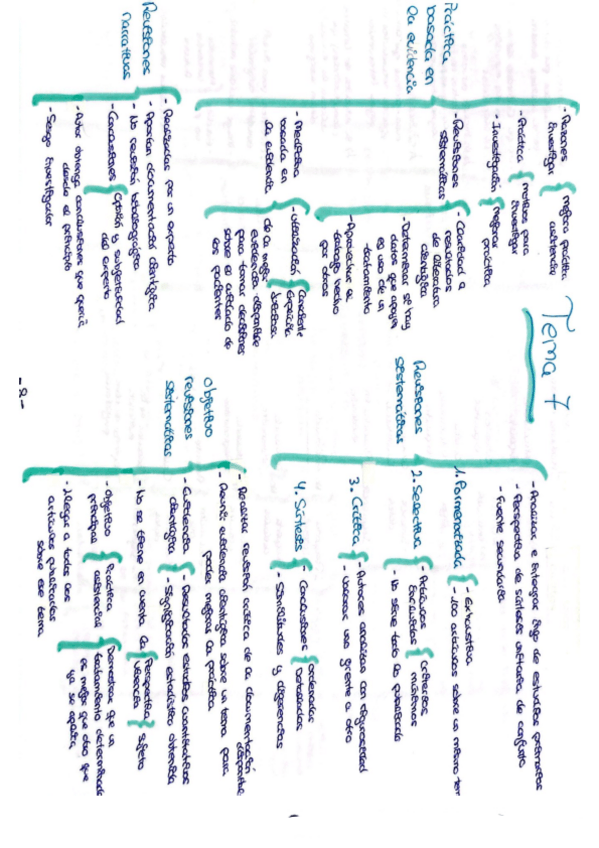 Tema 7
Práctica
basada en
la evidencia
- Razones
investigar
mejora práctica
asistencia
- Práctica
motivos para
investigar
- Investigación
mejorar
práctica
- Revisiones
sistemáticas
- Cantidad
resultados
de literatura
científica
- Determinar si hay
datos que apoyan
el uso de un
tratamiento
- Aprovechar el
trabajo hecho
por otros
- Medicina
basada en
la evidencia
- Utilización
Consciente
explícita
juiciosa
de la mejor
evidencia disponible
para tomar decisiones
sobre el cuidado de
los pacientes
Revisiones
narrativas
- Realizadas por un experto
- Aportan documentación científica
- No revisión bibliográfica
- Conclusiones
opinión y subjetividad
del experto
- Autor obtenga conclusiones que quería
desde el principio
- Sesgo investigador
Revisiones
sistemáticas
- Analizar e integrar algo de estudios primarios
- Perspectiva de síntesis unitaria de conjunto
- Fuente secundaria
1. Pormenorizada
- Exhaustiva
- 100 artículos sobre un mismo
2. Selectiva
- Artículos
incluidos
criterios
mínimos
- No sirve todo lo publicado
3. Crítica
- Autores analizan con rigurosidad
- Valorar uno frente a otro
4. Síntesis
- Conclusiones
ordenadas
destacadas
- Similitudes y diferencias
Objetivo
revisiones
sistemáticas
- Realizar revisión crítica de la documentación
disponible
- Reunir evidencia científica sobre un tema para
poder mejorar la práctica
- Evidencia
científica
- Resultados estudios cuantitativos
- Significación estadística obtenida
- No se tiene en cuenta la
Perspectiva
vivencia
sujeto
- Objetivo
principal
Práctica
asistencia
Demostrar que un
tratamiento determinado
es mejor que otro que
ya se aplica
- Llegar a todos los
artículos publicados
sobre ese tema
-2-